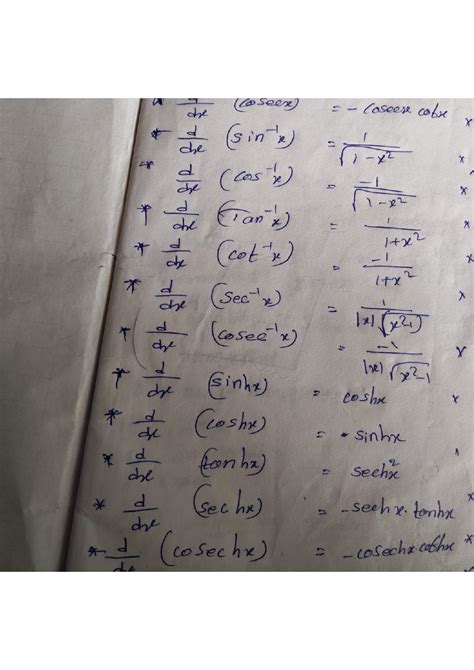 * d/dx (cosecx) = - cosecx cotx x
* d/dx (sin⁻¹x) = 1/√(1-x²) x
* d/dx (cos⁻¹x) = -1/√(1-x²) x
* d/dx (Tan⁻¹x) = 1/(1+x²) x
* d/dx (cot⁻¹x) = -1/(1+x²) x
* d/dx (sec⁻¹x) = 1/(|x|√(x²-1)) x
* d/dx (cosec⁻¹x) = -1/(|x|√(x²-1)) x
* d/dx (sinhx) = coshx x
* d/dx (coshx) = sinhx x
* d/dx (tanhx) = sechx² x
* d/dx (sechx) = -sechx·tanhx x
* d/dx (cosechx) = -cosechx·cothx x